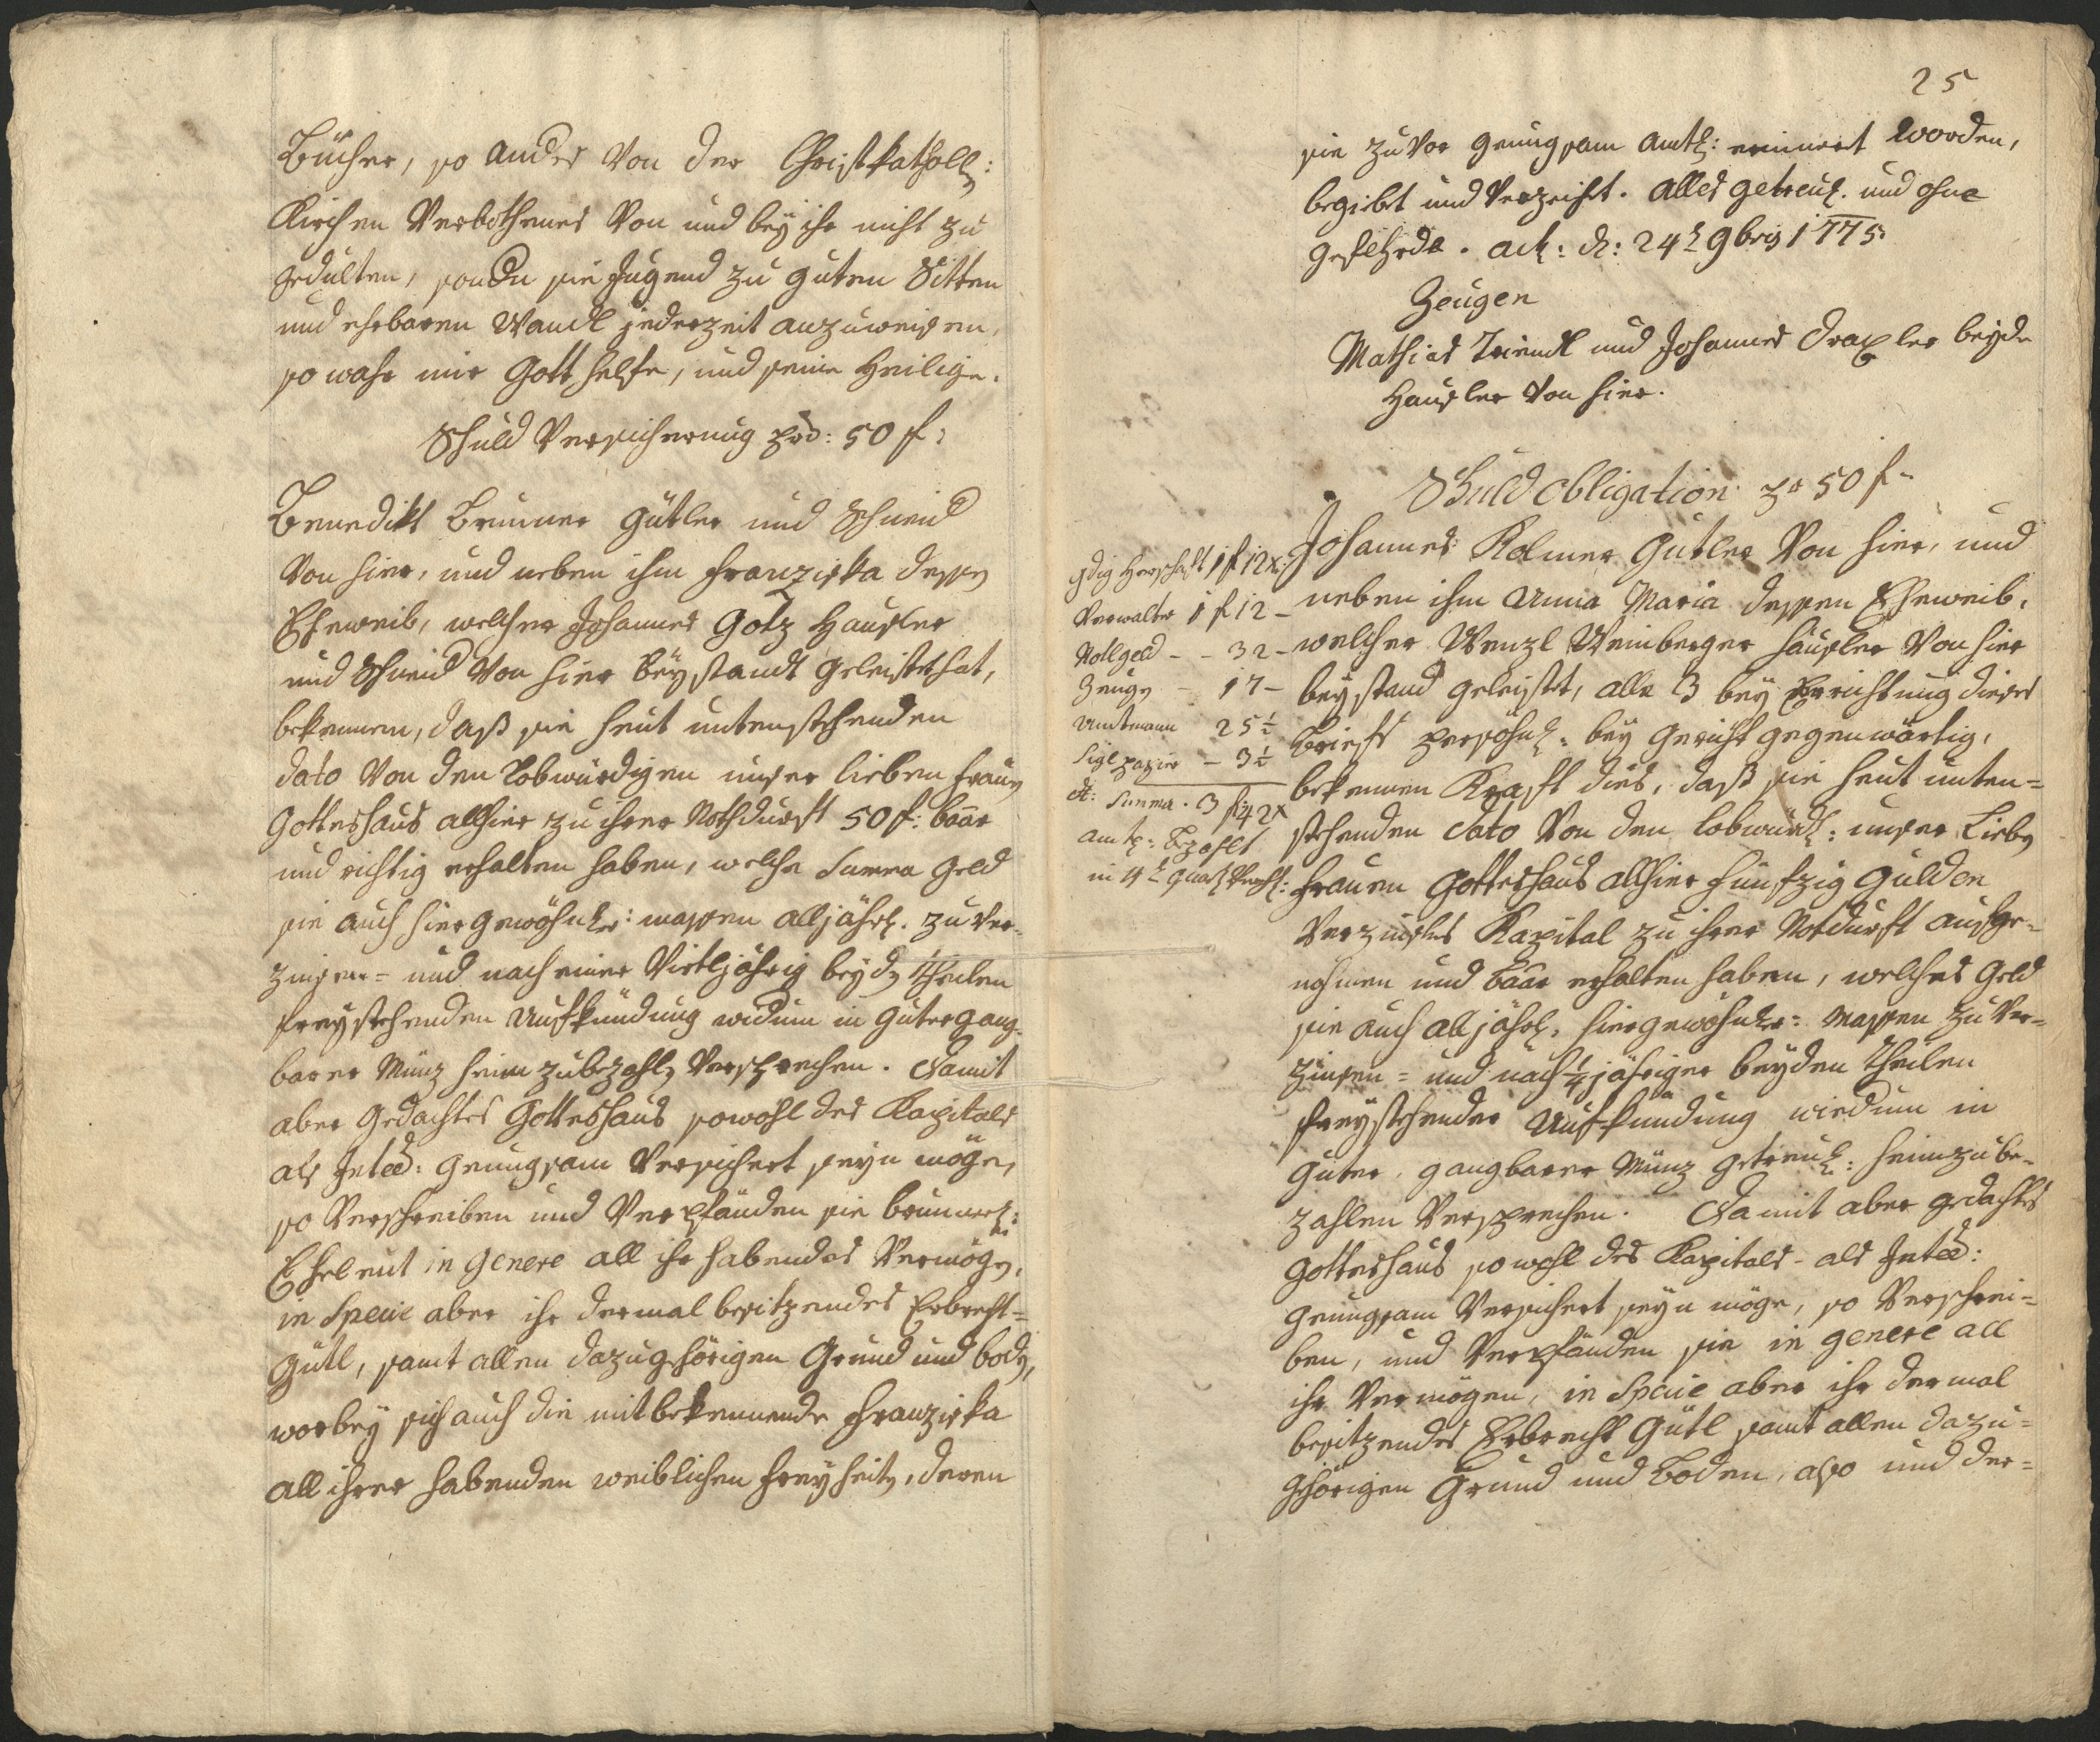 Bücher, so anders von der Christkatholl:
Kirchen Verbothenes von und bey ihr nicht zu
gedulten, sondern die Jugend zu guten Sitten
und ehrbaren Wandl jederzeit anzuweisen,
so wahr mir Gott helfe, und seine Heilige.
Schuld Versicherung pr: 50 f:
Benedikt Brunner Gütler und Schneid
von hier, und neben ihm Franziska dessen
Eheweib, welcher Johannes Götz Häusler
und Schneid von hier Beystandt geleistet hat,
bekennen, daß sie heut untenstehenden
dato von den Lobwürdigen unser lieben Frauen
Gotteshaus allhier zu ihrer Nothdurft 50 f: baar
und richtig erhalten haben, welche Summa Geld
sie auch hiergewöhnl: massen alljährl. zu ver-
zinsen = und nach einer Viertljährig beyden Theilen
freystehenden Aufkündung widum in guter gang-
barer Münz heim zubezahlen versprechen. Damit
aber gedachtes Gotteshaus sowohl des Kapitals
als Intee: genugsam versichert seyn möge,
so verschreiben und verpfänden sie brunner:
Eheleut in genere all ihr habendes Vermögen,
in Specie aber ihr dermal besitzendes Erbrecht=
Gütl, samt allen dazugehörigen Grund und boden,
worbey sich auch die mitbekennende Franziska
all ihrer habenden weiblichen Freyheiten, deren
25
sie zuvor genugsam amtl: erinnert worden,
begiebt und verzeiht. Alles getreul. und ohne
gefehrde. Act: d: 24t 9bris 1775.
Zeugen
Mathias Triendl und Johannes Draxler beyde
Häusler von hier.
Schuld Obligation pr 50 f.
gdig Herschaft 1 f 12 x:
Verwalter 1 f 12 -
Nottgeld - - 32 -
Zeugen - 17 -
Amtmann 25 1/2
Siglpapier - 3 1/2
Summa. 3 f 42 x
amtl: Bezahlt
Johannes Kolmer Gütler von hier, und
neben ihm Anna Maria dessen Eheweib,
welcher Wenzl Weinberger Häusler von hier
beystand geleistet, alle 3 bey Errichtung dieses
Briefs persöhnl: bey Gericht gegenwärtig,
bekennen Kraft dies, daß sie heut unten=
stehenden Dato von den Lobwürd: unser Lieben
Frauen Gotteshaus allhier fünfzig Gulden
Verzinslis Kapital zu ihrer Notdurft aufge-
nohmen und baar erhalten haben, welches Geld
sie auch alljährl. hiergewöhnl: massen zu ver=
zinsen = und nach 1/4 jähriger beyden Theilen
freystehender Aufkündung wiedum in
guter, gangbarer Münz getreul: heimzube-
zahlen versprechen. Damit aber gedachtes
Gotteshaus sowohl des Kapitals - als Intee:
genugsam versichert seyn möge, so verschrei=
ben, und verpfänden sie in genere all
ihr Vermögen, in Specie aber ihr dermal
besitzendes Erbrecht Gütl samt allen dazu=
ghörigen Grund und Boden, also und der=